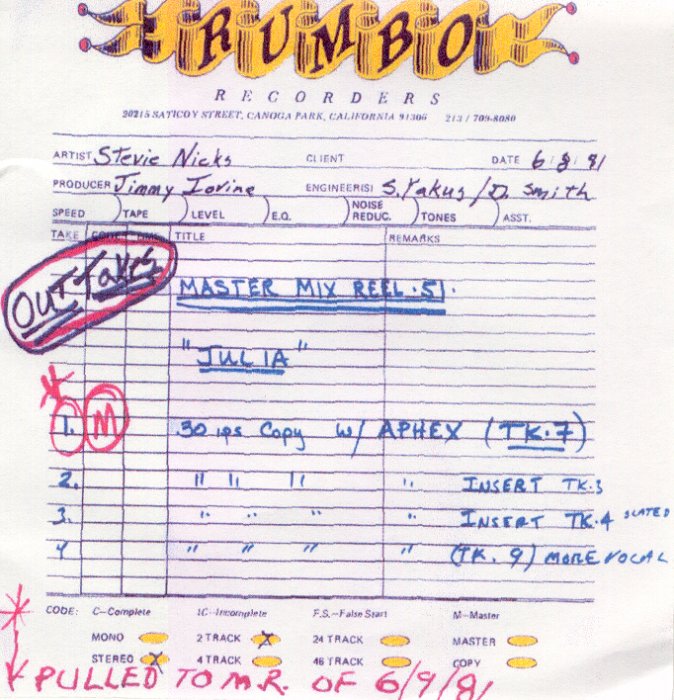 RUMBO
RECORDERS
20215 SATICOY STREET, CANOGA PARK, CALIFORNIA 91306 213 / 709-8080
ARTIST Stevie Nicks CLIENT DATE 6/8/81
PRODUCER Jimmy Iovine ENGINEER(S) S. Yakus / D. Smith
SPEED TAPE LEVEL E.Q. NOISE REDUC. TONES ASST.
TAKE CODE TITLE REMARKS
OUT Takes
MASTER MIX REEL · 51 ·
"JULIA"
1. M 30 ips Copy w/ APHEX (TK. 7)
2. " " " " INSERT TK. 3
3. " " " " INSERT TK. 4 SLATED
4 " " " " (TK. 9) MORE VOCAL
CODE: C—Complete IC—Incomplete F.S.—False Start M—Master
MONO 2 TRACK X 24 TRACK MASTER
STEREO X 4 TRACK 46 TRACK COPY
PULLED TO M.R. OF 6/9/81